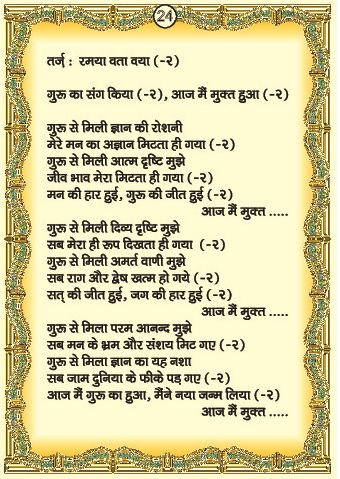 24
तर्ज़ : रमया वता वया (-२)
गुरु का संग किया (-२), आज मैं मुक्त हुआ (-२)
गुरु से मिली ज्ञान की रोशनी
मेरे मन का अज्ञान मिटता ही गया (-२)
गुरु से मिली आत्म दृष्टि मुझे
जीव भाव मेरा मिटता ही गया (-२)
मन की हार हुई, गुरु की जीत हुई (-२)
आज मैं मुक्त .....
गुरु से मिली दिव्य दृष्टि मुझे
सब मेरा ही रूप दिखता ही गया (-२)
गुरु से मिली अमर्त वाणी मुझे
सब राग और द्वेष खत्म हो गये (-२)
सत् की जीत हुई, जग की हार हुई (-२)
आज मैं मुक्त .....
गुरु से मिला परम आनन्द मुझे
सब मन के भ्रम और संशय मिट गए (-२)
गुरु से मिला ज्ञान का यह नशा
सब जाम दुनिया के फीके पड़ गए (-२)
आज मैं गुरु का हुआ, मैंने नया जन्म लिया (-२)
आज मैं मुक्त .....